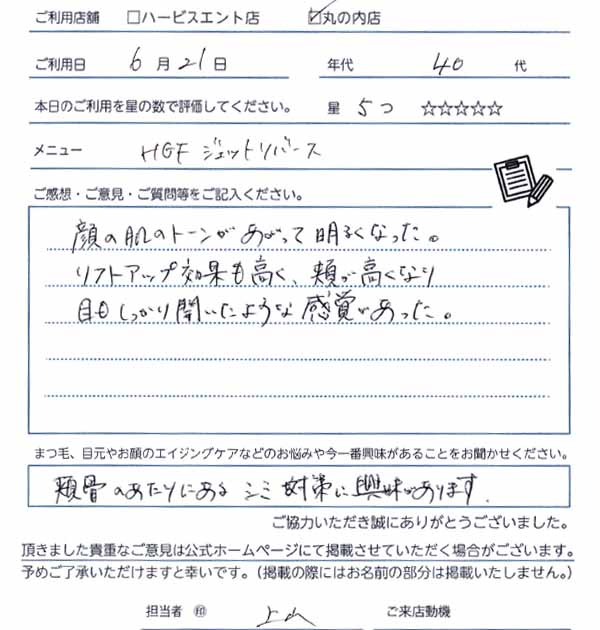 ご利用店舗 □ハービスエント店 ☑丸の内店
ご利用日 6月21日 年代 40代
本日のご利用を星の数で評価してください。 星 5つ ☆☆☆☆☆
メニュー HGF ジェットリバース
ご感想・ご意見・ご質問等をご記入ください。
顔の肌のトーンがあがって明るくなった。
リフトアップ効果も高く、頬が高くなり
目もしっかり開いたような感覚があった。
まつ毛、目元やお顔のエイジングケアなどのお悩みや今一番興味があることをお聞かせください。
頬骨のあたりにあるシミ対策に興味があります。
ご協力いただき誠にありがとうございました。
頂きました貴重なご意見は公式ホームページにて掲載させていただく場合がございます。
予めご了承いただけますと幸いです。（掲載の際にはお名前の部分は掲載いたしません。）
担当者 ㊞ 上山 ご来店動機